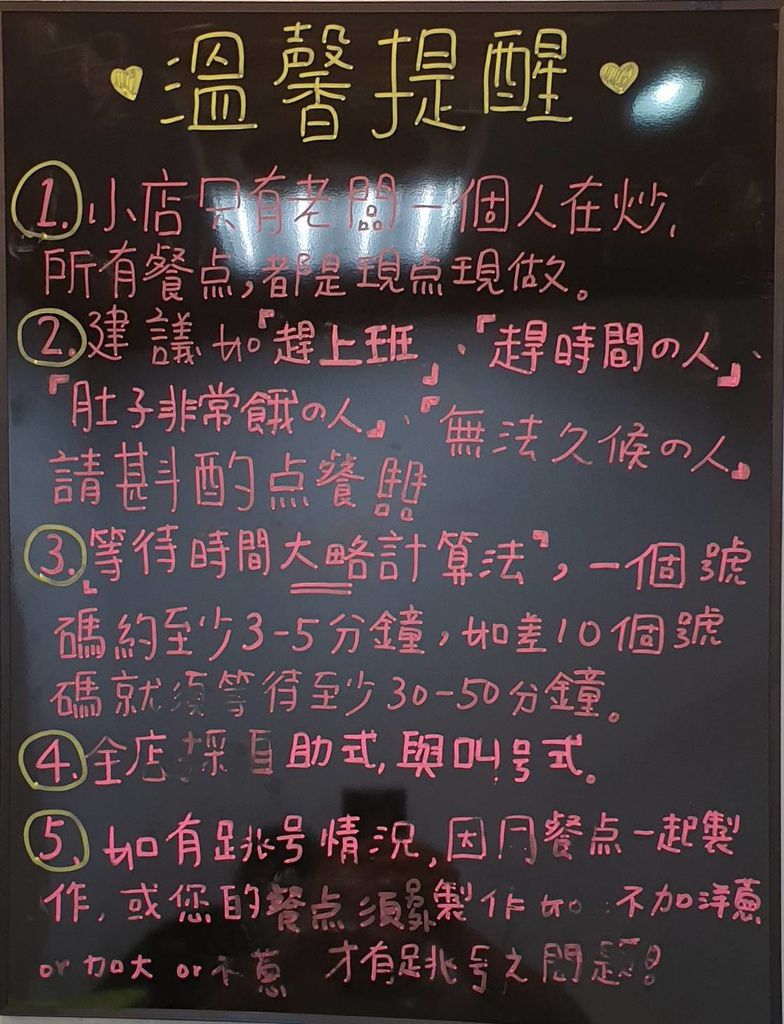 溫馨提醒
1. 小店只有老闆一個人在炒,
所有餐点,都是現点現做。
2. 建議如『趕上班』、『趕時間の人』、
『肚子非常餓の人』、『無法久候の人』
請斟酌点餐!!!!
3. 『等待時間大略計算法』,一個號
碼約至少3-5分鐘,如差10個號
碼就須等待至少30-50分鐘。
4. 全店採自助式,與叫号式。
5. 如有跳号情況,因同餐点一起製
作,或您的餐点須另外製作如 不加洋蔥
or 加大 or 不蔥 才有跳号之問題!